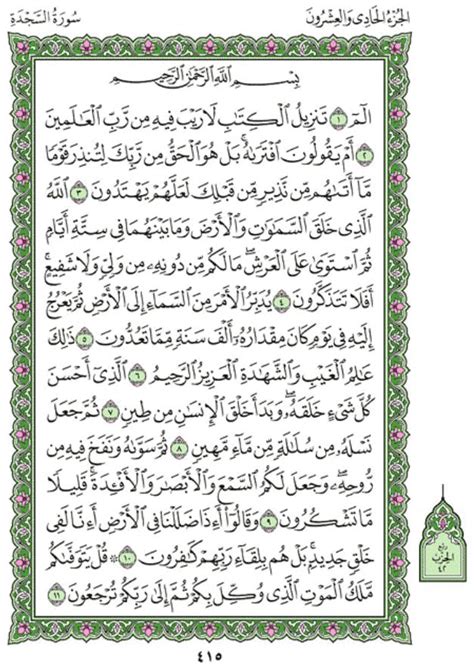 الجزء الحادى والعشرون
سورة السجدة
بِسْمِ ٱللَّهِ ٱلرَّحْمَٰنِ ٱلرَّحِيمِ
الٓمٓ ١ تَنزِيلُ ٱلْكِتَٰبِ لَا رَيْبَ فِيهِ مِن رَّبِّ ٱلْعَٰلَمِينَ
٢ أَمْ يَقُولُونَ ٱفْتَرَىٰهُ ۚ بَلْ هُوَ ٱلْحَقُّ مِن رَّبِّكَ لِتُنذِرَ قَوْمًا
مَّآ أَتَىٰهُم مِّن نَّذِيرٍ مِّن قَبْلِكَ لَعَلَّهُمْ يَهْتَدُونَ ٣ ٱللَّهُ
ٱلَّذِى خَلَقَ ٱلسَّمَٰوَٰتِ وَٱلْأَرْضَ وَمَا بَيْنَهُمَا فِى سِتَّةِ أَيَّامٍ
ثُمَّ ٱسْتَوَىٰ عَلَى ٱلْعَرْشِ ۖ مَا لَكُم مِّن دُونِهِۦ مِن وَلِىٍّ وَلَا شَفِيعٍ ۚ
أَفَلَا تَتَذَكَّرُونَ ٤ يُدَبِّرُ ٱلْأَمْرَ مِنَ ٱلسَّمَآءِ إِلَى ٱلْأَرْضِ ثُمَّ يَعْرُجُ
إِلَيْهِ فِى يَوْمٍ كَانَ مِقْدَارُهُۥٓ أَلْفَ سَنَةٍ مِّمَّا تَعُدُّونَ ٥ ذَٰلِكَ
عَٰلِمُ ٱلْغَيْبِ وَٱلشَّهَٰدَةِ ٱلْعَزِيزُ ٱلرَّحِيمُ ٦ ٱلَّذِىٓ أَحْسَنَ
كُلَّ شَىْءٍ خَلَقَهُۥ ۖ وَبَدَأَ خَلْقَ ٱلْإِنسَٰنِ مِن طِينٍ ٧ ثُمَّ جَعَلَ
نَسْلَهُۥ مِن سُلَٰلَةٍ مِّن مَّآءٍ مَّهِينٍ ٨ ثُمَّ سَوَّىٰهُ وَنَفَخَ فِيهِ مِن
رُّوحِهِۦ ۖ وَجَعَلَ لَكُمُ ٱلسَّمْعَ وَٱلْأَبْصَٰرَ وَٱلْأَفْـِٔدَةَ ۚ قَلِيلًا
مَّا تَشْكُرُونَ ٩ وَقَالُوٓا۟ أَءِذَا ضَلَلْنَا فِى ٱلْأَرْضِ أَءِنَّا لَفِى
خَلْقٍ جَدِيدٍۭ ۚ بَلْ هُم بِلِقَآءِ رَبِّهِمْ كَٰفِرُونَ ١٠ ۞ قُلْ يَتَوَفَّىٰكُم
مَّلَكُ ٱلْمَوْتِ ٱلَّذِى وُكِّلَ بِكُمْ ثُمَّ إِلَىٰ رَبِّكُمْ تُرْجَعُونَ ١١
ربع
الحزب
٤٢
٤١٥